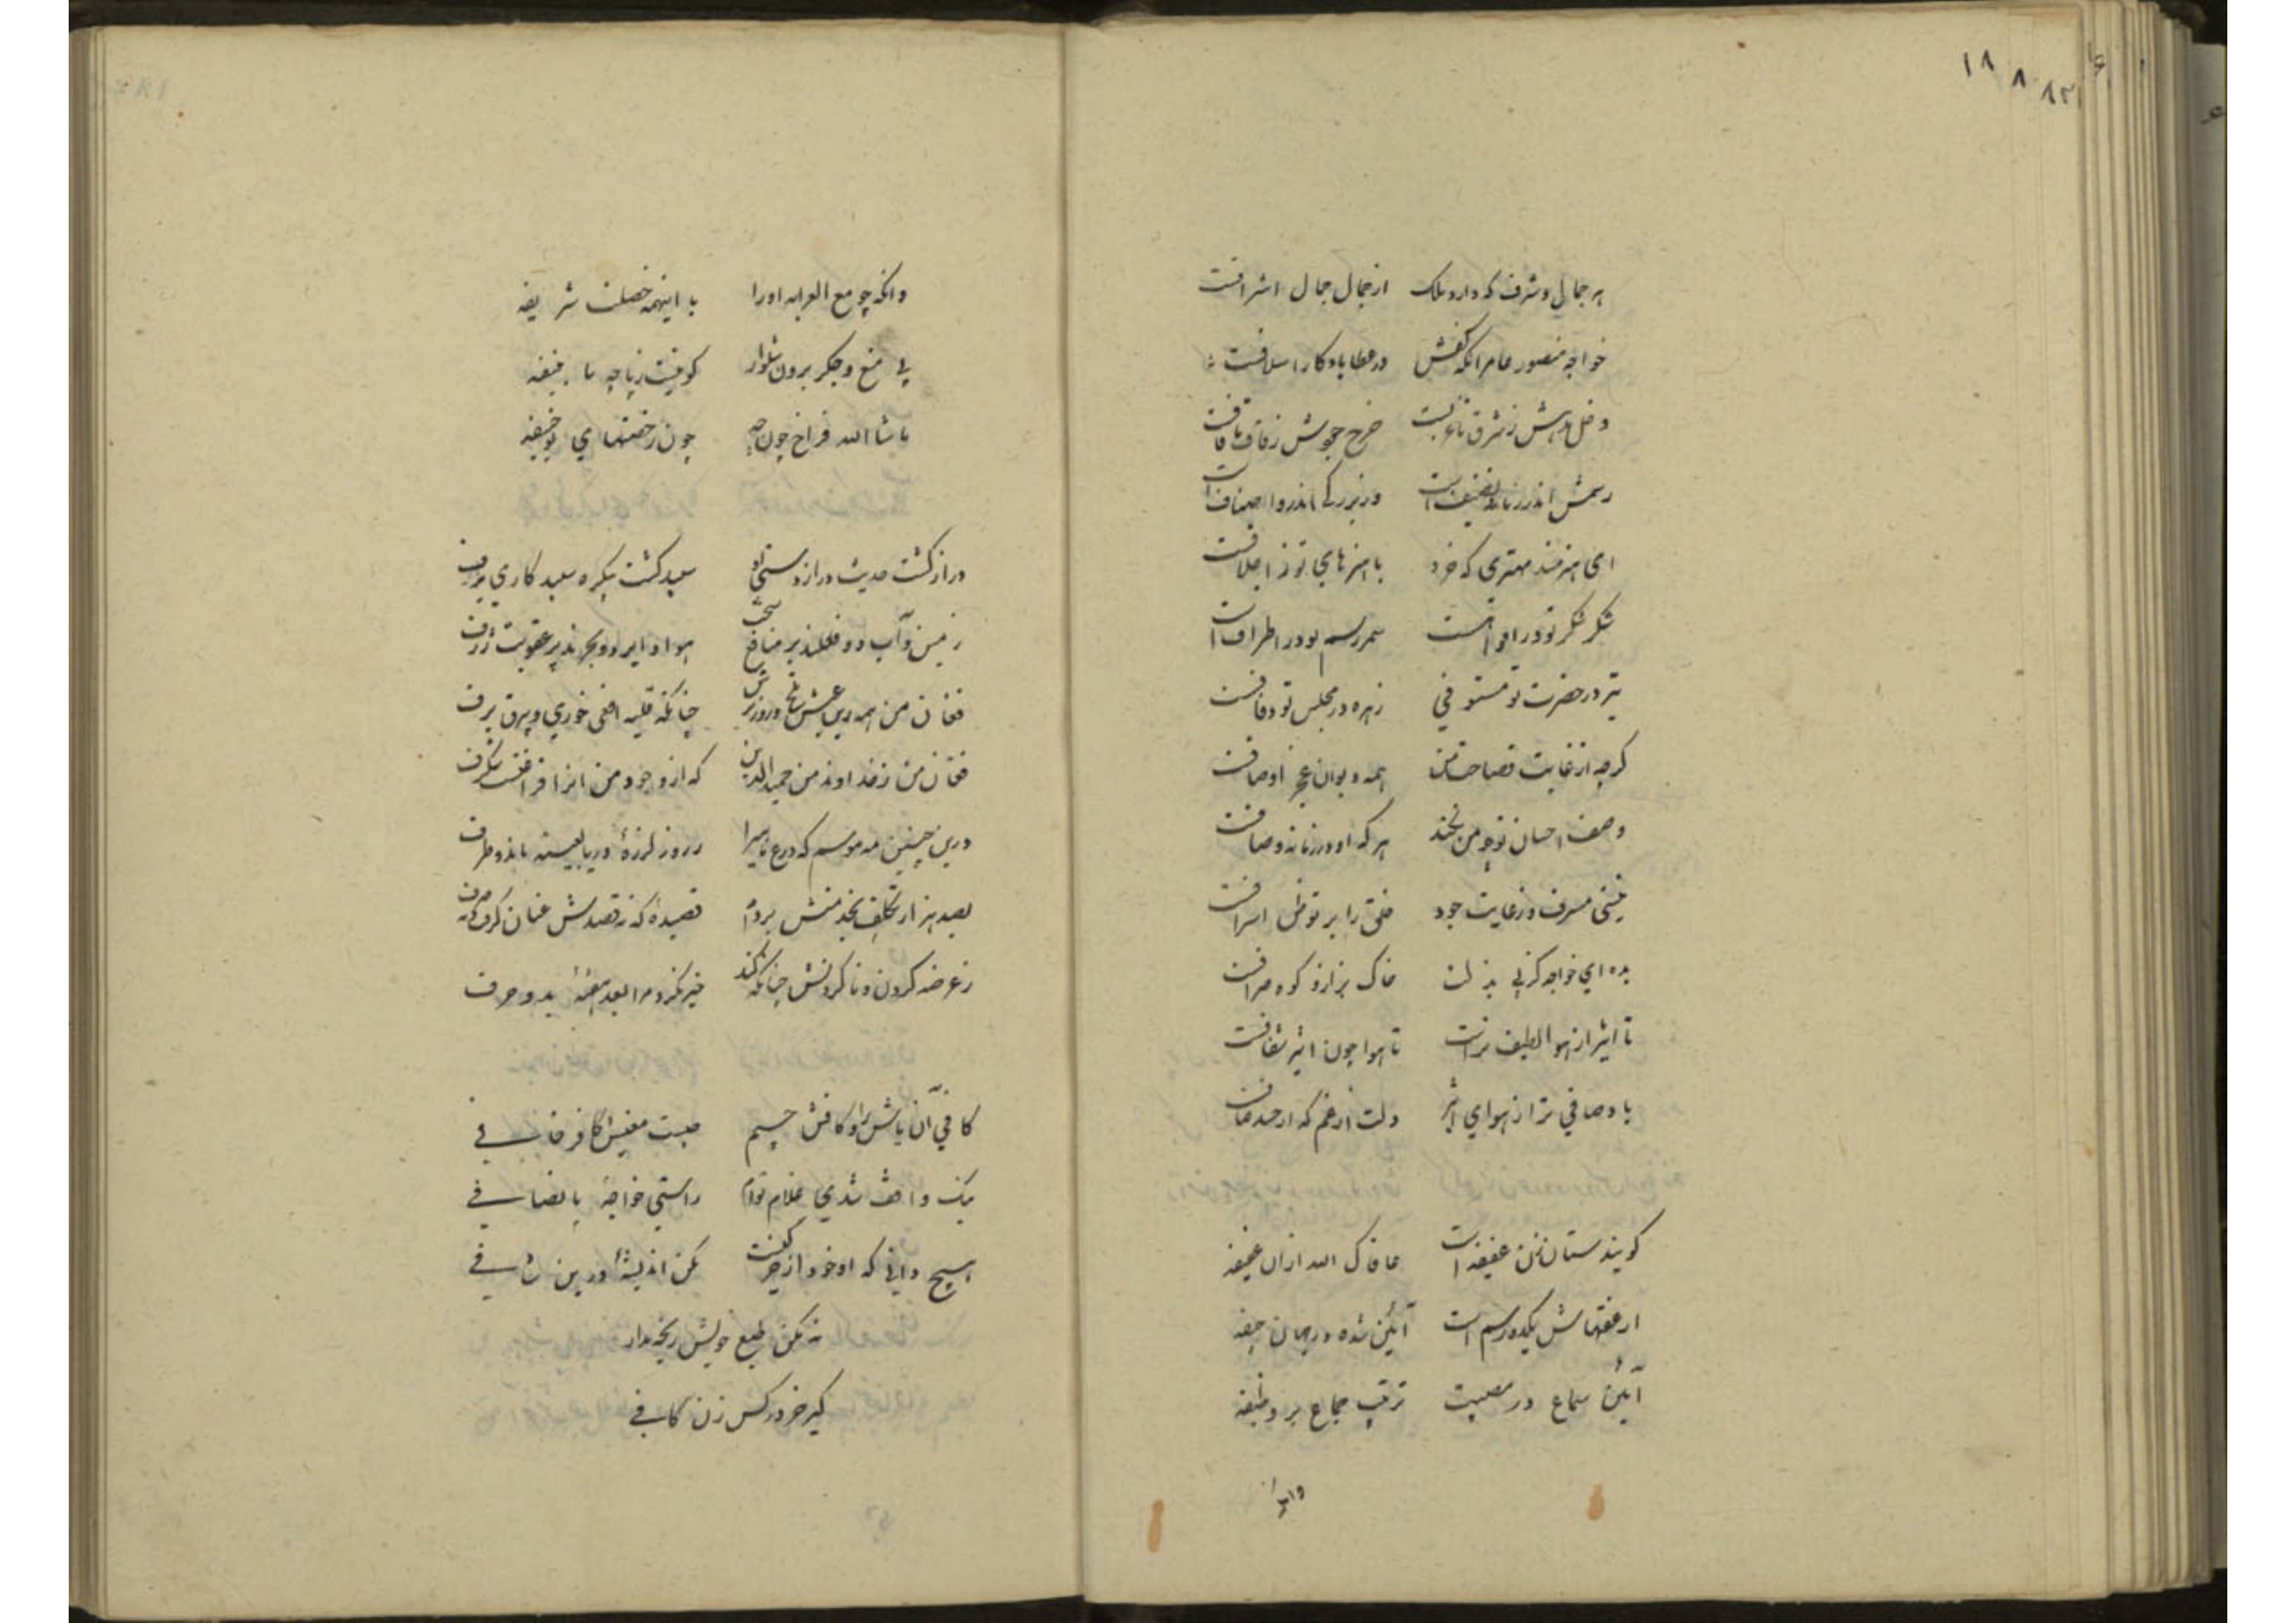 ۱۸ ۸ ۸۳
هر جمال و شرف که دارد ملک از جمال جمال اشرافست
خواجه منصور عامر آنکه کفش در عطا یادکار اسلافست
دخل مدحش ز شرق تا غربست خرج جودش ز قاف تا قافست
رسمش اندر زمانه تصنیف است در بزرگی اندرو اصنافست
ای هنرمند مهتری که خرد با هنرهای تو ز اجلافست
شکر شکر تو در افواهست سمر رسم تو در اطراف است
تیر در حضرت تو مستوفی زهره در مجلس تو دفافست
کرچه از غایت فصاحت من همه دیوان عجز اوصافست
وصف احسان تو چو من نکند هر که او در زمانه وصافست
نیستی مسرف و ز غایت جود خلق را بر تو ظن اسرافست
بده ای خواجه کز پی بذلت خاک بزاز و کوه صرافست
تا اثیر از هوا لطیف ترست تا هوا چون اثیر شفافست
باد صافی تر از هوای اثیر دلت از غم که از حسد صافست
کویند ستان زن عفیفه است عافاک الله ازان عفیفه
از عفتهاش یکدو رسم است آئین شده در جهان جیفه
آئین سماع در مصیبت ترتیب جماع بر وظیفه
وانکه چو مع الغرابه او را با اینهمه خصلت شریفه
بی منع و جگر برون شلوار کوفیست زپاچه تا بنیفه
ماشاالله فراخ چون چه چون رخصتهای بوحنیفه
دراز کشت حدیث دراز دستی تو سپید کشت بیکره سپید کاری برف
زمین و آب دو فعلند پر منافع سخت هوا و ابر دو بحرند پر عقوبت ژرف
فغان من همه زین عیش تلخ و روز ترش چنانکه قلیه افعی خوری و برق برف
فغان من ز خداوند من حمیدالدین که از وجود من او را فراغتیست شکرف
درین چنین مه موسم که درع ناپیرا ز روز لرزه دریا بعینه ماند و طرف
بصد هزار تکلف بخدمتش بردم قصیده که نه قصدش عنان کرفت و نه صرف
ز عرضه کردن و نا کردنش چنانکه کند خبر نکرد مرا بعد هفته بدو حرف
کافی آن باش را و کافش جیم صبت معنیش کافر خافی
نیک واقف شدی غلام توام راستی خواجه با انصافی
هیچ دانی که او خود از حر کیست بکن اندیشه درین شافی
نه مکن طبع خویش رنجه مدار
کیر خر در کس زن کافی